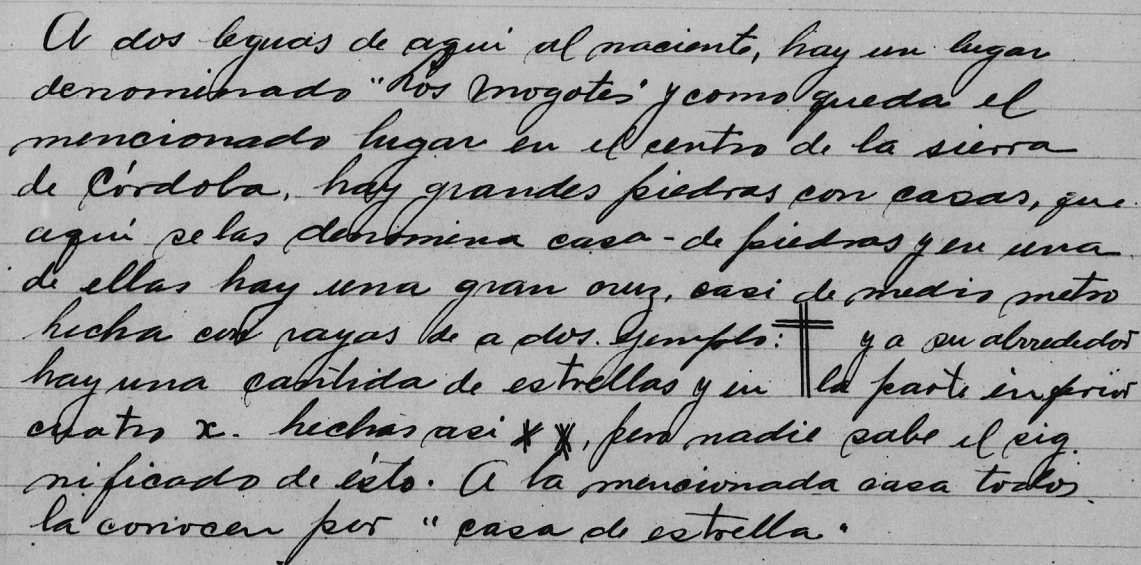 A dos leguas de aqui al naciente, hay un lugar
denominado "Los Mogotes" y como queda el
mencionado lugar en el centro de la sierra
de Córdoba, hay grandes piedras con casas, que
aqui se las denomina casa-de piedras y en una
de ellas hay una gran cruz, casi de medio metro
hecha con rayas de a dos. Ejemplo: y a su alrrededor
hay una cantida de estrellas y en la parte inferior
cuatro x. hechas asi x x, pero nadie sabe el sig
nificado de ésto. A la mencionada casa todos
la conocen por "casa de estrella."